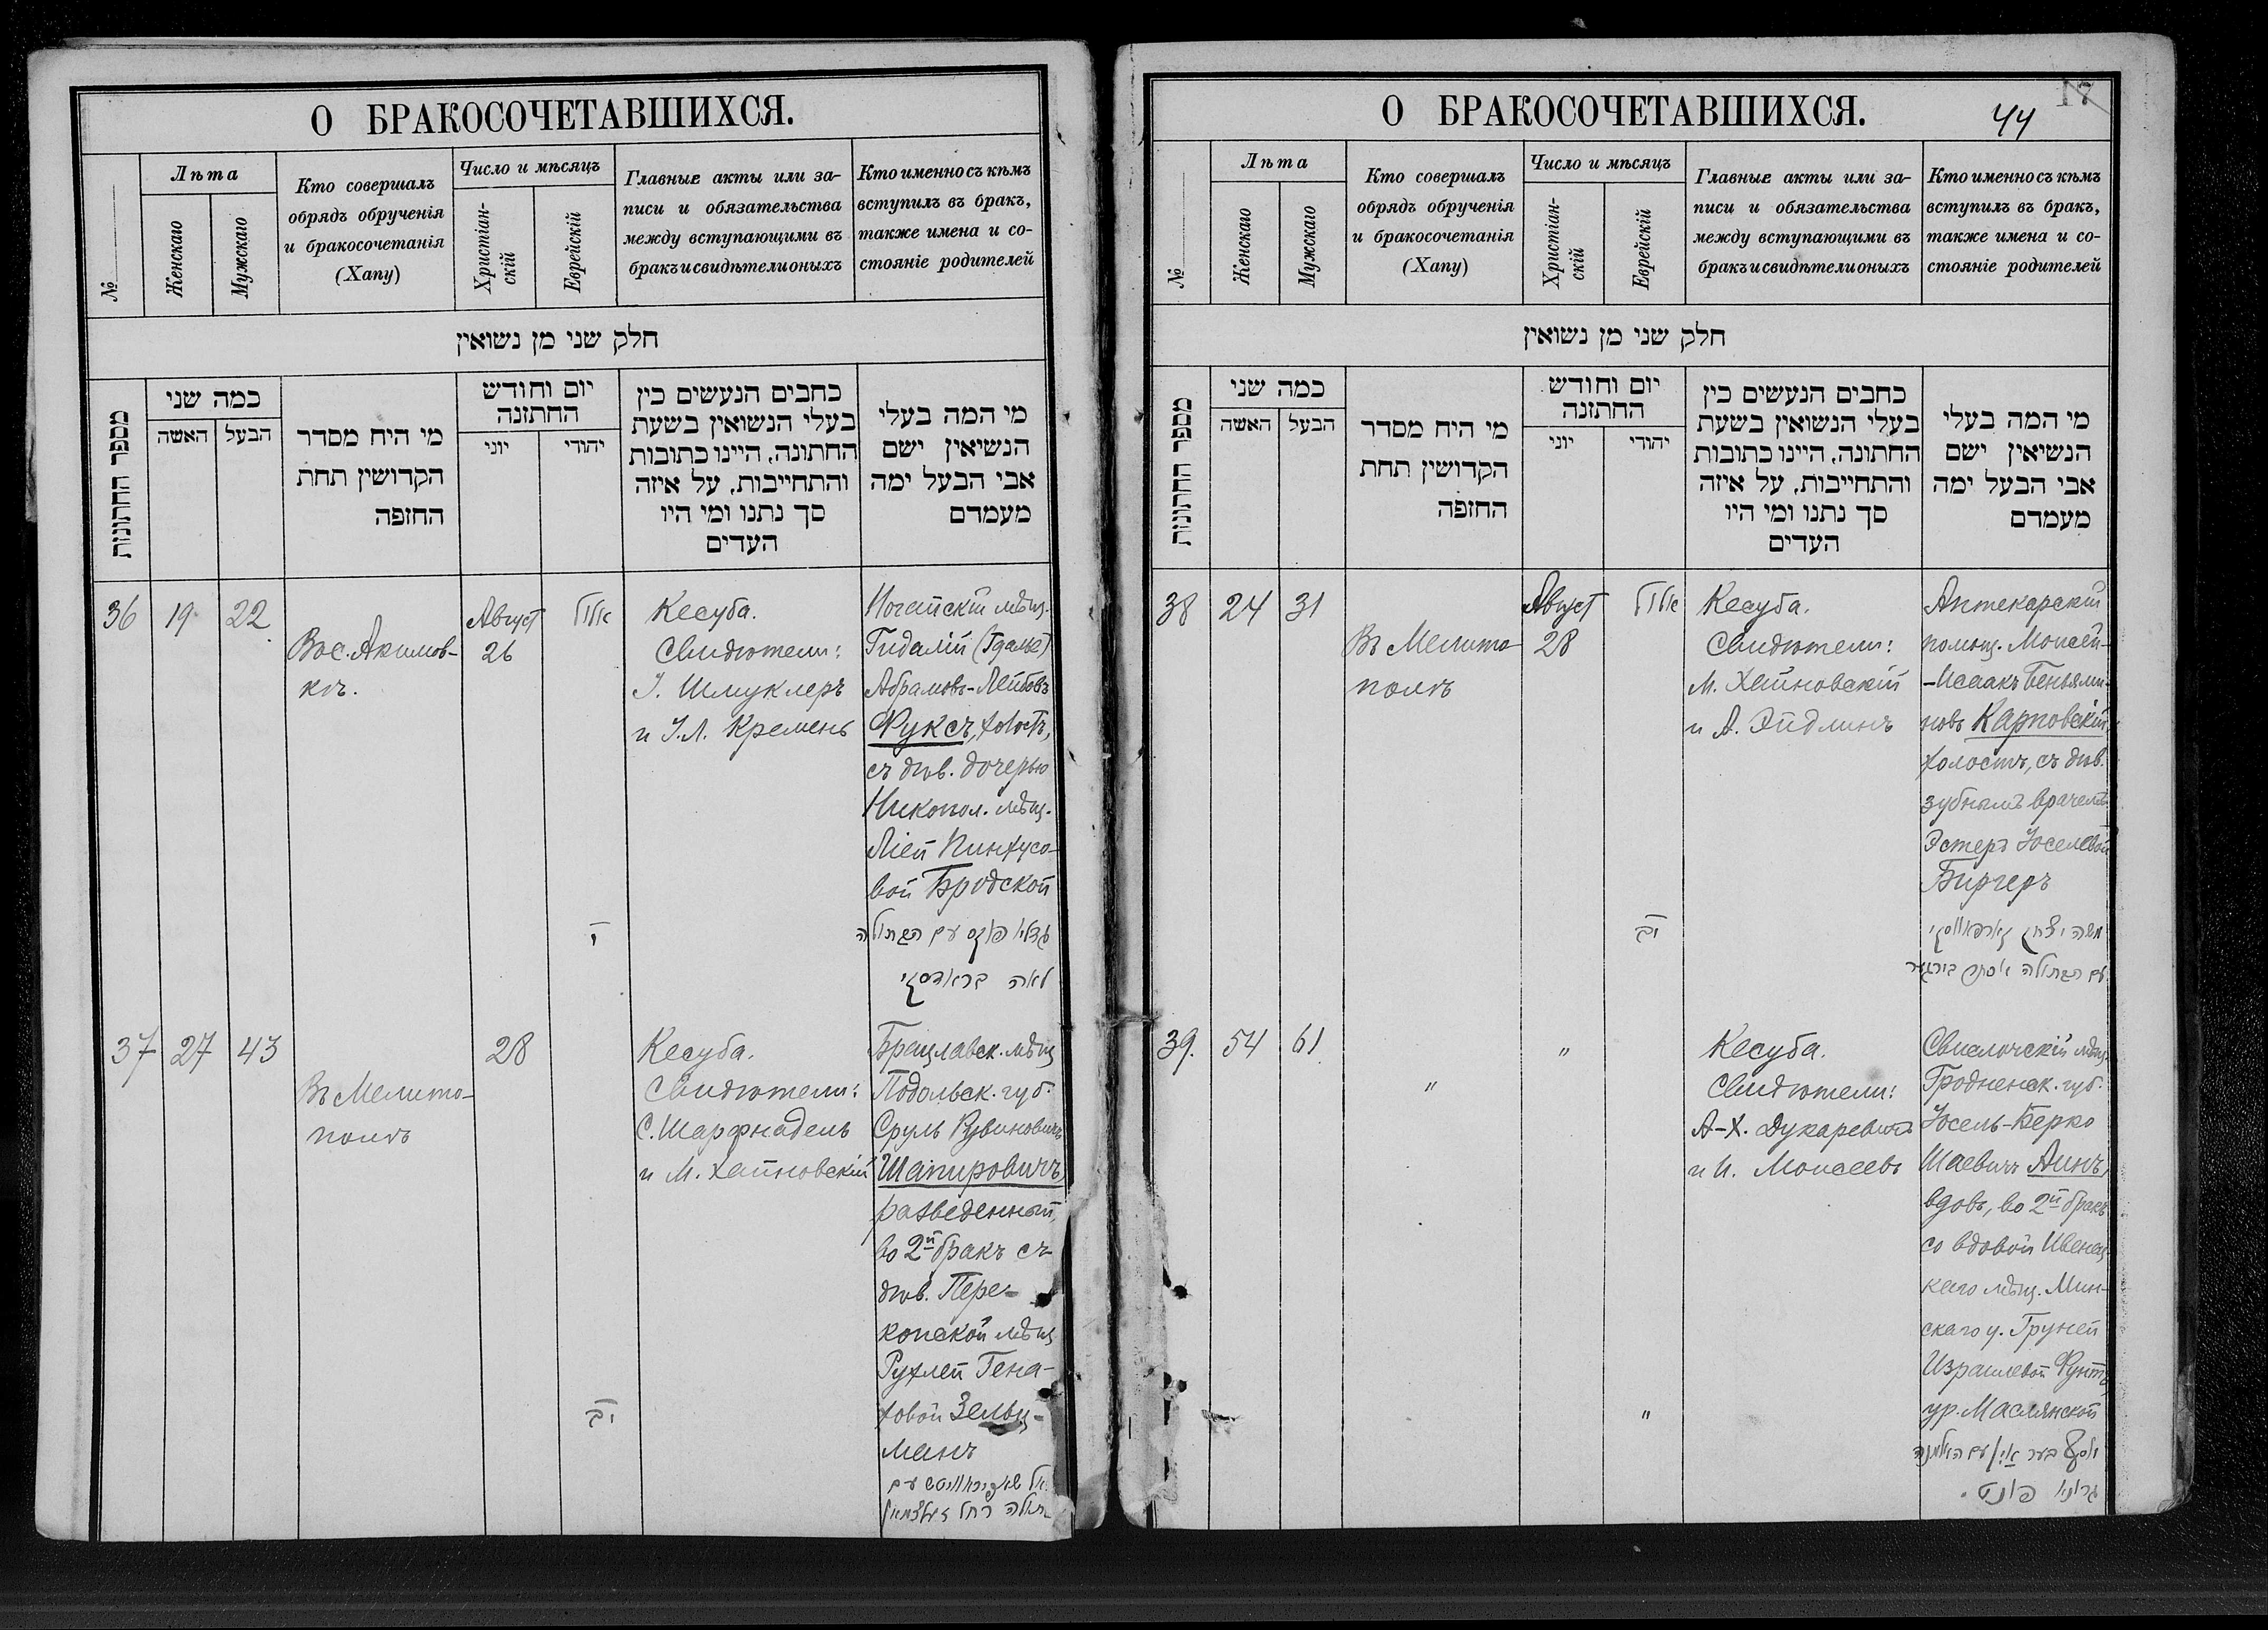 О БРАКОСОЧЕТАВШИХСЯ.
№
Лѣта
Женскаго
Мужскаго
Кто совершалъ
обрядъ обрученія
и бракосочетанія
(Хапу)
Число и мѣсяцъ
Христіан-
скій
Еврейскій
Главные акты или за-
писи и обязательства
между вступающими въ
бракъ и свидѣтели оныхъ
Кто именно съ кѣмъ
вступилъ въ бракъ,
также имена и со-
стояніе родителей
חלק שני מן נשואין
מספר החתונות
כמה שני
האשה
הבעל
מי היח מסדר
הקדושין תחת
החזפה
יום וחודש
החתזנה
יוני
יהודי
כחבים הנעשים כין
בעלי הנשואין בשעת
החתונה, היינו כתובות
והתחייבות, על איזה
סך נתנו ומי היו
העדים
מי המה בעלי
הנשיאין ישם
אבי הבעל ימה
מעמדם
36
19
22
Во с. Акимов-
кѣ.
Август
26
אלול
י
Кесуба.
Свидѣтели:
І. Шмуклеръ
и І. Л. Кремень
Ногайскій мѣщ.
Гидалій (Гдалье)
Абрамовъ-Лейбовъ
Фуксъ, холостъ,
съ дѣв. дочерью
Никопол. мѣщ.
Ліей Пинхусо-
вой Бродской
גדליא פוקס עם הבתולה
לאה בראדסקי
37
27
43
Въ Мелито-
полѣ
28
יב
Кесуба.
Свидѣтели:
С. Шарфнадель
и М. Хайновскій
Брацлавск. мѣщ
Подольск. губ.
Сруль Рувиновичъ
Шапировичъ,
разведенный,
во 2й бракъ съ
дѣв. Пере-
копской мѣщ
Рухлей Гена-
ховой Зельц-
манъ
עם
רחל זעלצמאן
О БРАКОСОЧЕТАВШИХСЯ.
44
17
№
Лѣта
Женскаго
Мужскаго
Кто совершалъ
обрядъ обрученія
и бракосочетанія
(Хапу)
Число и мѣсяцъ
Христіан-
скій
Еврейскій
Главные акты или за-
писи и обязательства
между вступающими въ
бракъ и свидѣтели оныхъ
Кто именно съ кѣмъ
вступилъ въ бракъ,
также имена и со-
стояніе родителей
חלק שני מן נשואין
מספר החתונות
כמה שני
האשה
הבעל
מי היח מסדר
הקדושין תחת
החזפה
יום וחודש
החתזנה
יוני
יהודי
כחבים הנעשים כין
בעלי הנשואין בשעת
החתונה, היינו כתובות
והתחייבות, על איזה
סך נתנו ומי היו
העדים
מי המה בעלי
הנשיאין ישם
אבי הבעל ימה
מעמדם
38
24
31
Въ Мелито-
полѣ
Август
28
אלול
יב
Кесуба.
Свидѣтели:
М. Хайновскій
и А. Эйдлинъ
Аптекарскій
помощ. Моисей-
-Исаакъ Беньями-
новъ Карповскій,
холостъ, съ дѣв.
зубнымъ врачемъ
Эстеръ Іоселевой
Биргеръ
משה יצחק קארפאווסקי
עם הבתולה אסתר בירגער
39.
54
61
"
"
"
Кесуба.
Свидѣтели:
А-Х. Дукаревичъ
и И. Моисеевъ
Свислочскій мѣщ.
Гродненск. губ.
Іосель-Берко
Шаевичъ Аинъ,
вдовъ, во 2й бракъ
со вдовой Ивенец-
каго мѣщ. Мин-
скаго у. Груней
Израилевой Фунтъ,
ур. Маслянской
יוסף בער אין עם האלמנה
גרוניא פונט.